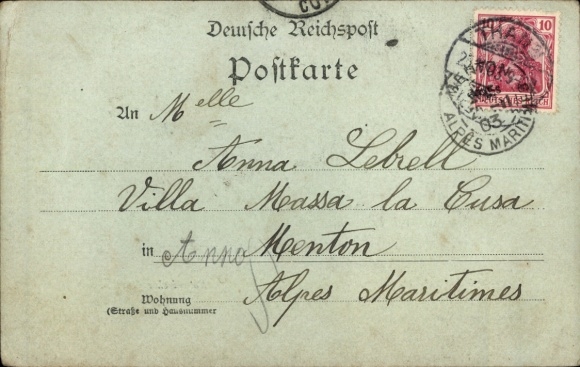 Deutsche Reichspost
Postkarte
10
THANN
ALPES MARITIMES
03
An Melle
Anna Lebrell
Villa Massa la Cusa
in Menton
Alpes Maritimes
Wohnung
(Straße und Hausnummer